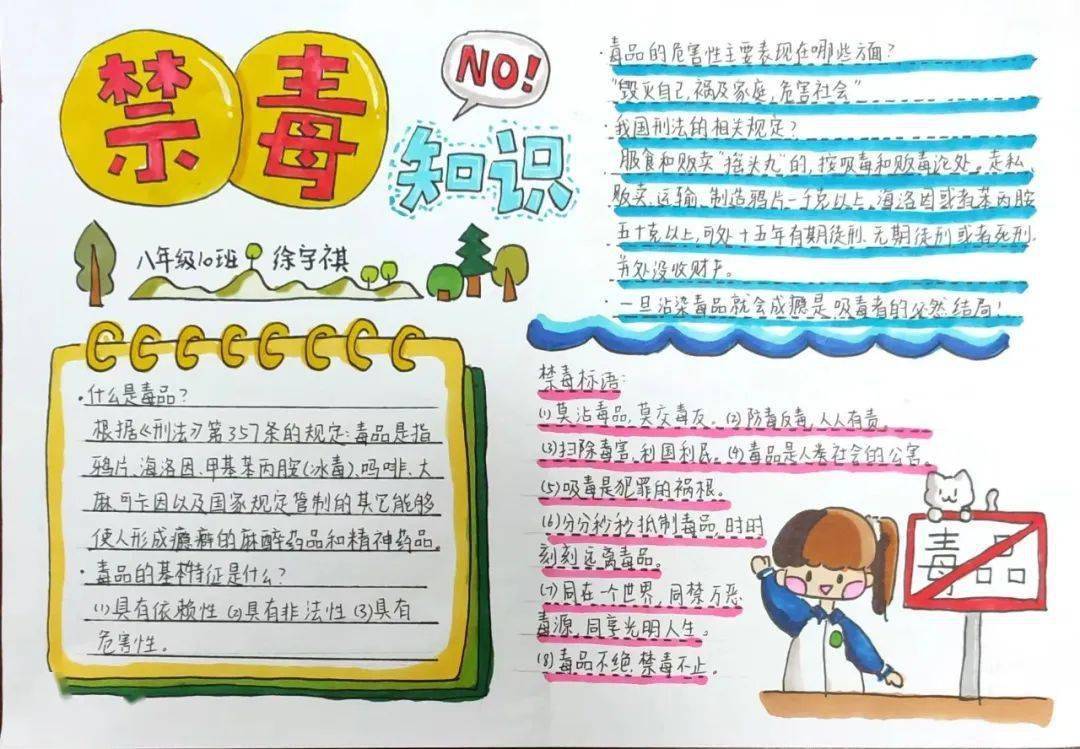 禁毒
NO!
知识
八年级10班 徐宇祺
·什么是毒品?
根据《刑法》第357条的规定:毒品是指
鸦片、海洛因、甲基苯丙胺(冰毒)、吗啡、大
麻、可卡因以及国家规定管制的其它能够
使人形成瘾癖的麻醉药品和精神药品。
·毒品的基本特征是什么?
(1)具有依赖性 (2)具有非法性 (3)具有
危害性。
·毒品的危害性主要表现在哪些方面?
"毁灭自己,祸及家庭,危害社会"
·我国刑法的相关规定?
服食和贩卖"摇头丸"的,按吸毒和贩毒论处。走私
贩卖、运输、制造鸦片一千克以上,海洛因或者苯丙胺
五十克以上,可处十五年有期徒刑、无期徒刑或者死刑,
并处没收财产。
·一旦沾染毒品就会成瘾是吸毒者的必然结局!
禁毒标语:
(1)莫沾毒品,莫交毒友。(2)防毒反毒,人人有责。
(3)扫除毒害,利国利民。(4)毒品是人类社会的公害。
(5)吸毒是犯罪的祸根。
(6)分分秒秒抵制毒品,时时
刻刻远离毒品。
(7)同在一个世界,同禁万恶
毒源,同享光明人生。
(8)毒品不绝,禁毒不止。
毒品